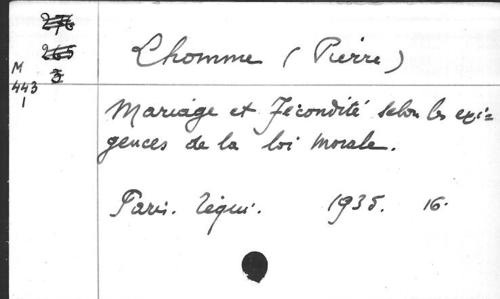 276
265
3
M
443
1
Lhomme (Pierre)
Mariage et Fécondité selon les exi=
gences de la loi morale.
Paris. Téqui. 1935. 16.